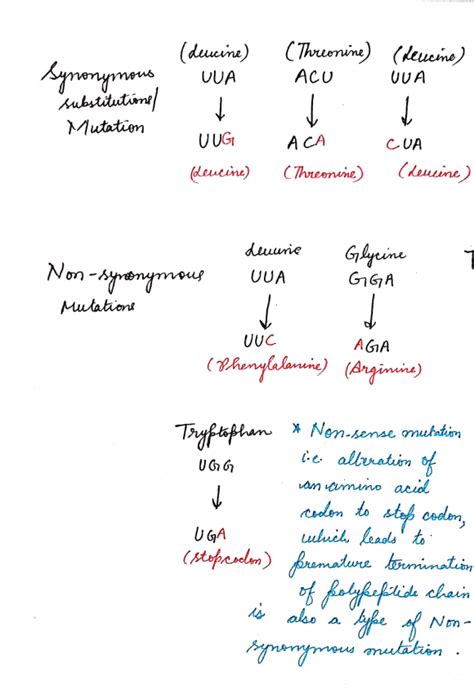 (Leucine) (Threonine) (Leucine)
Synonymous UUA ACU UUA
substitutions/
Mutation UUG ACA CUA
(Leucine) (Threonine) (Leucine)
Leucine Glycine
Non-synonymous UUA GGA
Mutations
UUC AGA
(Phenylalanine) (Arginine)
Tryptophan * Non-sense mutation
UGG i.e. alteration of
an amino acid
codon to stop codon,
UGA which leads to
(stop codon) premature termination
of polypeptide chain
is also a type of Non-
synonymous mutation.